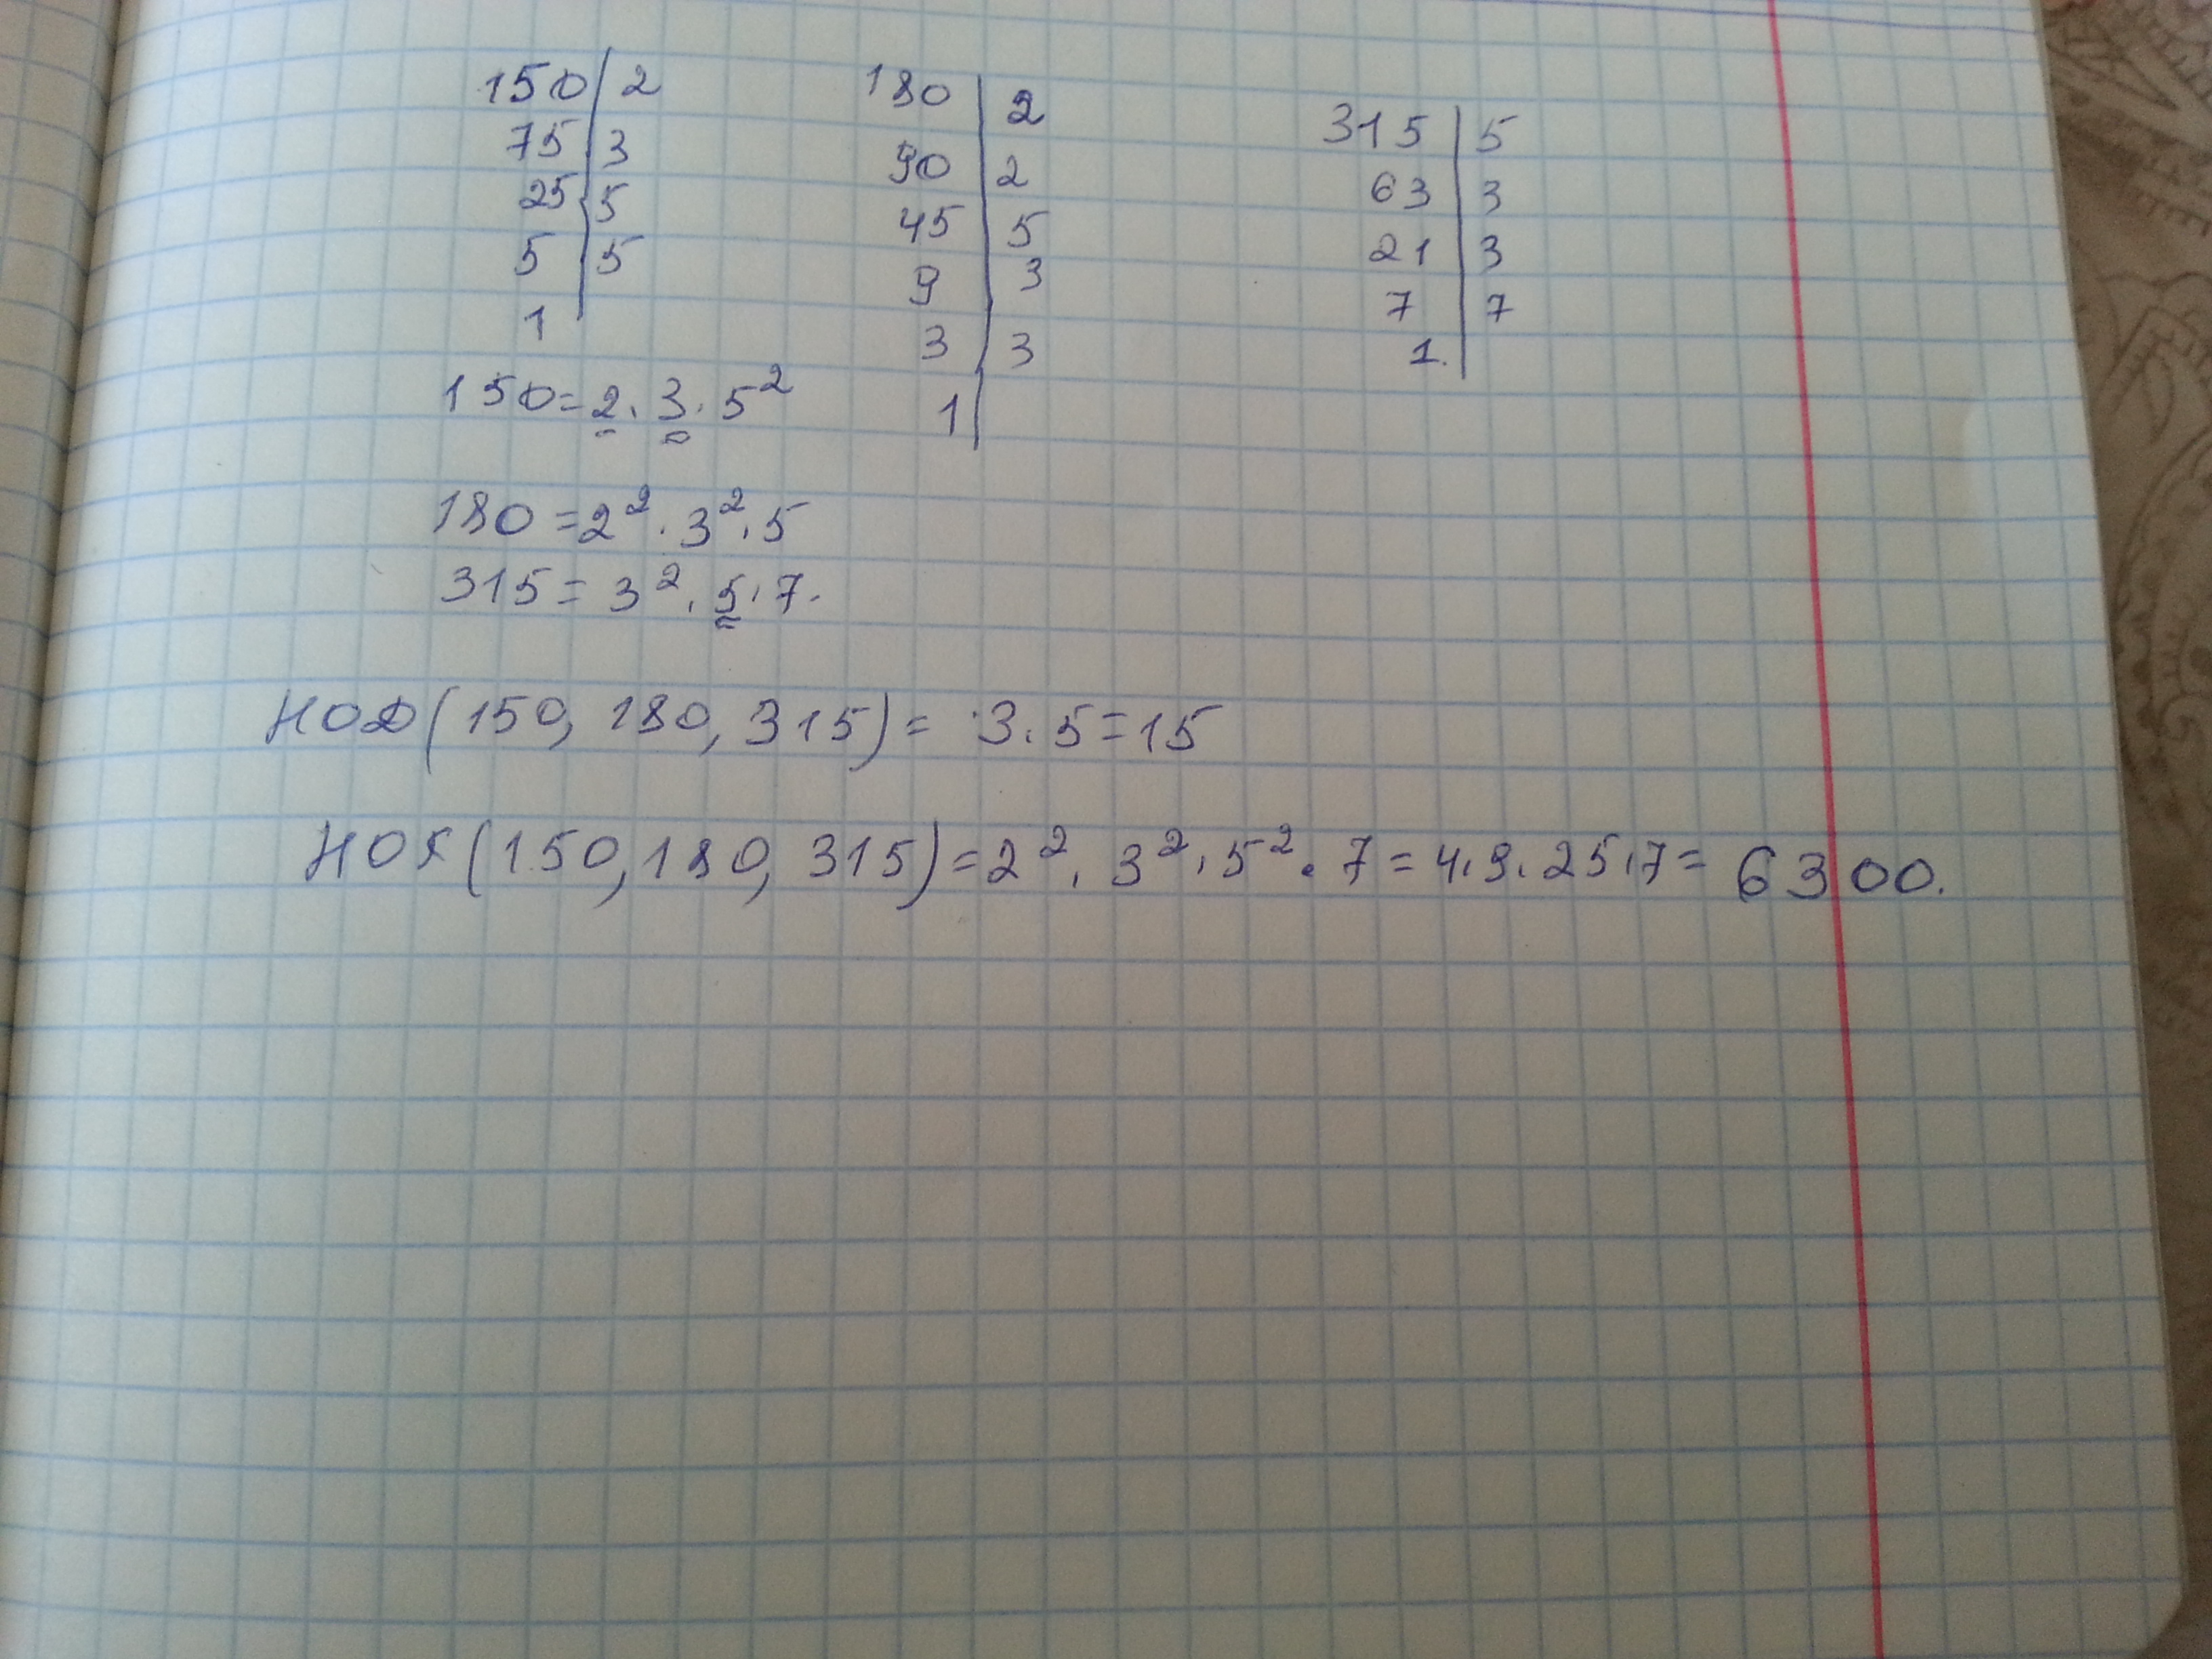 150 | 2
75 | 3
25 | 5
5 | 5
1
180 | 2
90 | 2
45 | 5
9 | 3
3 | 3
1 |
315 | 5
63 | 3
21 | 3
7 | 7
1. |
150 = 2 · 3 · 5²
180 = 2² · 3² · 5
315 = 3² · 5 · 7.
НОД (150, 180, 315) = ·3 · 5 = 15
НОК (150, 180, 315) = 2² · 3² · 5² · 7 = 4 · 9 · 25 · 7 = 6300.